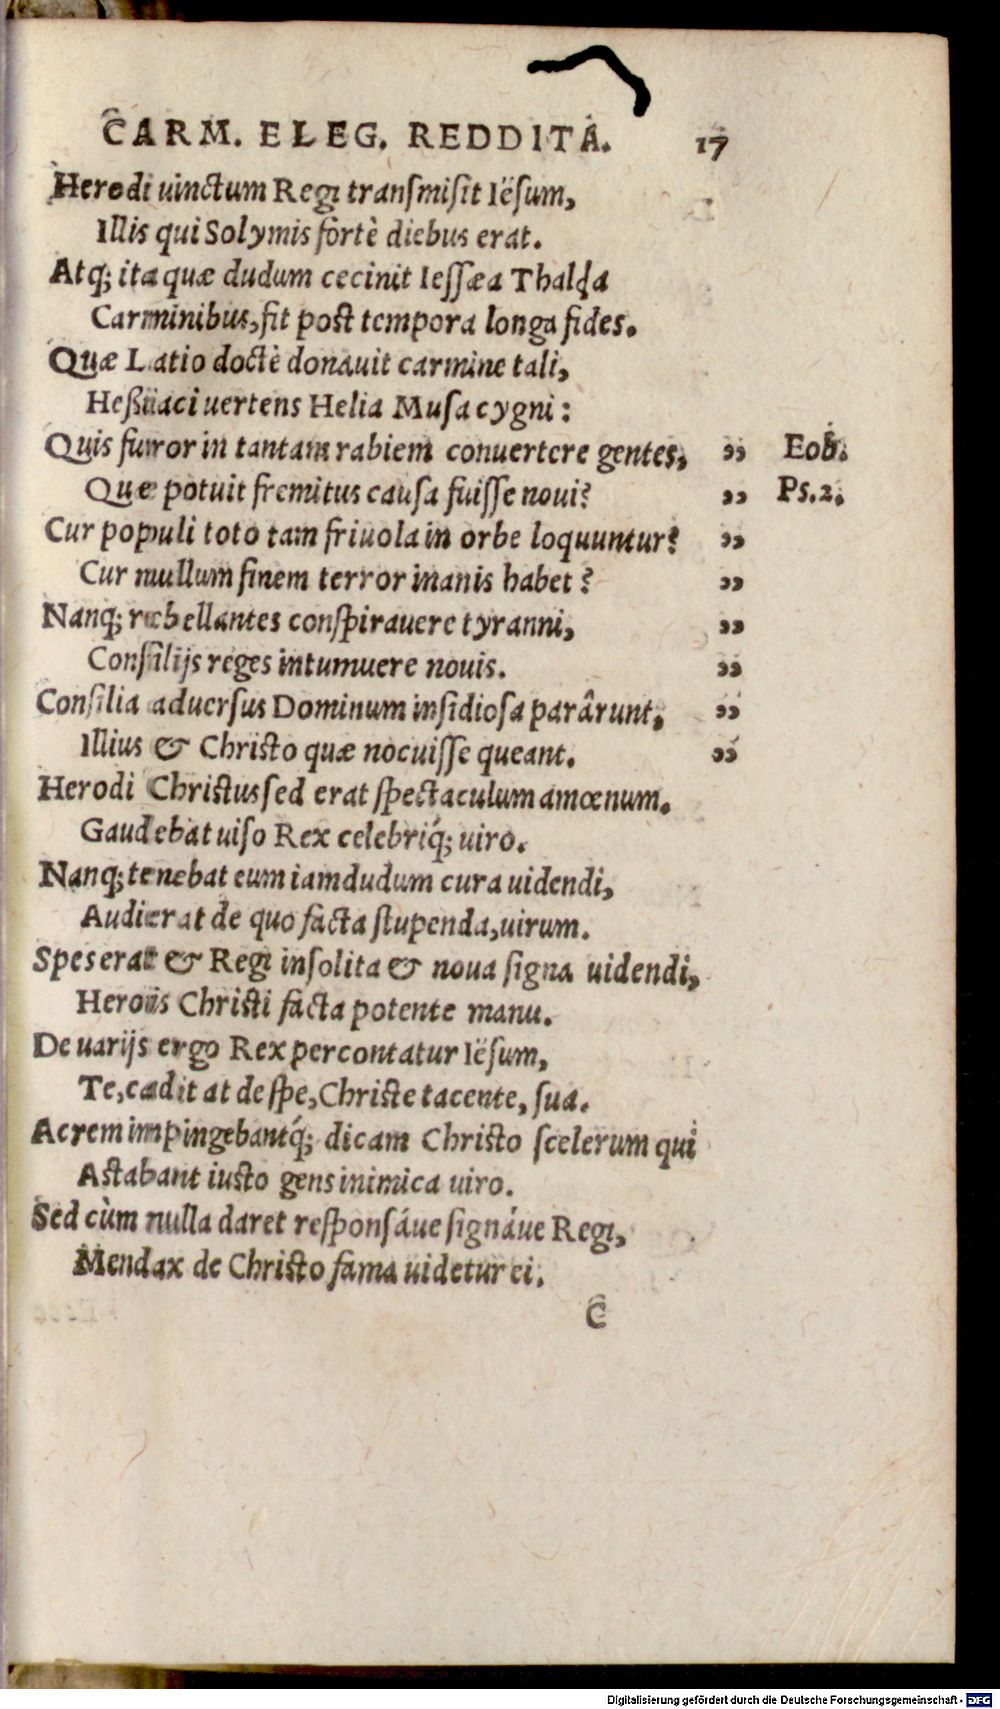 CARM. ELEG. REDDITA. 17
Herodi uinctum Regi transmisit Iësum,
Illis qui Solymis fortè diebus erat.
Atq; ita quæ dudum cecinit Iessæa Thalia
Carminibus, fit post tempora longa fides.
Quæ Latio doctè donauit carmine tali,
Heßiaci uertens Helia Musa cygni:
Quis furor in tantam rabiem conuertere gentes, „ Eob.
Quæ potuit fremitus causa fuisse noui? „ Ps.2.
Cur populi toto tam friuola in orbe loquuntur? „
Cur nullum finem terror inanis habet? „
Nanq; rebellantes conspirauere tyranni, „
Consilijs reges intumuere nouis. „
Consilia aduersus Dominum insidiosa parârunt, „
Illius & Christo quæ nocuisse queant. „
Herodi Christus sed erat spectaculum amœnum.
Gaudebat uiso Rex celebriq́; uiro.
Nanq; tenebat eum iamdudum cura uidendi,
Audierat de quo facta stupenda, uirum.
Spes erat & Regi insolita & noua signa uidendi,
Herois Christi facta potente manu.
De uarijs ergo Rex percontatur Iësum,
Te, cadit at de spe, Christe tacente, sua.
Acrem impingebantq́; dicam Christo scelerum qui
Astabant iusto gens inimica uiro.
Sed cùm nulla daret responsáue signáue Regi,
Mendax de Christo fama uidetur ei.
C
Digitalisierung gefördert durch die Deutsche Forschungsgemeinschaft - DFG